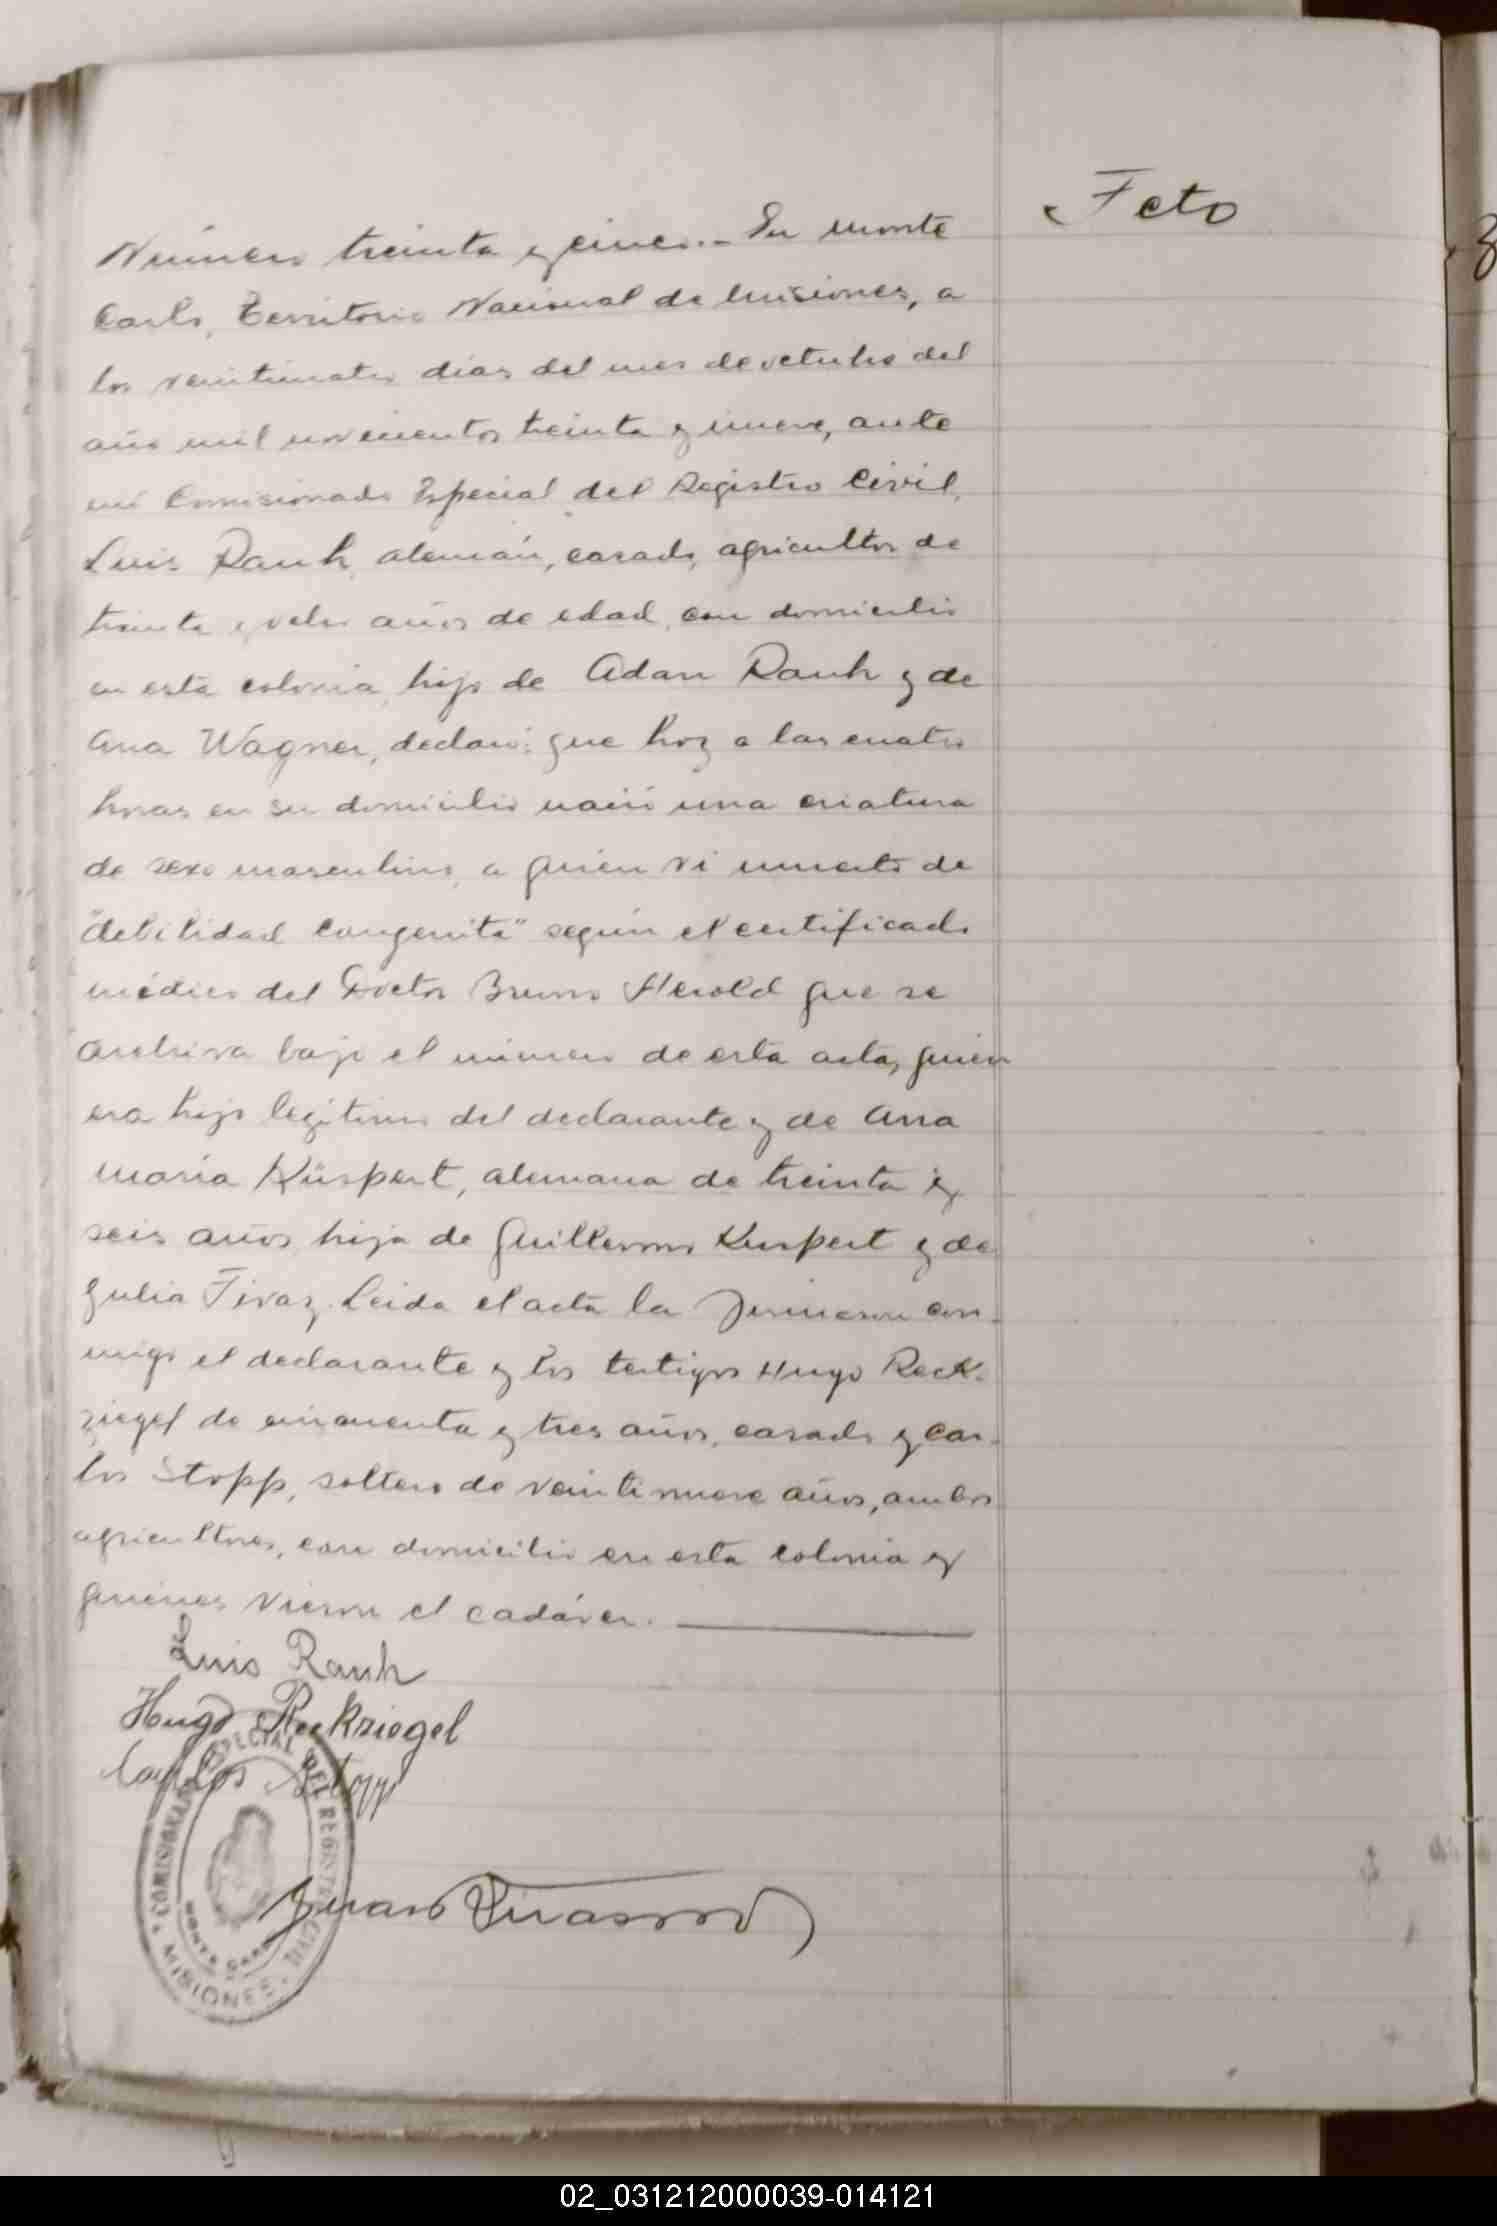 Feto
Número treinta y cinco.- En monte
Carlo, Territorio Nacional de Misiones, a
los veinticuatro dias del mes de octubre del
año mil novecientos treinta y nueve, ante
mi Comisionado Especial del Registro Civil,
Luis Rauh, alemán, casado, agricultor de
treinta y ocho años de edad, con domicilio
en esta colonia, hijo de Adan Rauh y de
Ana Wagner, declaró: que hoy a las cuatro
horas en su domicilio nació una criatura
de sexo masculino, a quien vi muerto de
"debilidad congenita" según el certificado
médico del Doctor Bruno Herold que se
archiva bajo el número de esta acta, quien
era hijo legítimo del declarante y de Ana
maria Küspert, alemana de treinta y
seis años, hija de Guillermo Kuspert y de
Julia . Leida el acta la firmaron con-
migo el declarante y los testigos Hugo Reck-
ziegel de cincuenta y tres años, casado y Car-
los Stopp, soltero de veintinueve años, ambos
agricultores, con domicilio en esta colonia y
quienes vieron el cadáver.
Luis Rauh
Hugo Reckziegel
Carlos Stopp
COMISIONADO ESPECIAL DEL REGISTRO CIVIL
MONTE CARLO
MISIONES
Juan
02_031212000039-014121